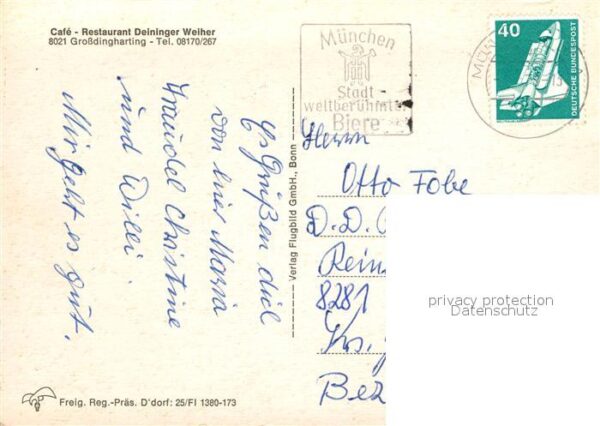 Café - Restaurant Deininger Weiher
8021 Großdingharting - Tel. 08170/267
Es Grüßen dich
von hier Maria
Traudel Christine
und Willi
Mir geht es gut.
Verlag Flugbild GmbH., Bonn
Freig. Reg.-Präs. D'dorf: 25/FI 1380-173
München
Stadt
weltberühmter
Biere
40
DEUTSCHE BUNDESPOST
Herrn
Otto Fobe
D.D.
Rein
8281
Krs.
Bez
privacy protection
Datenschutz